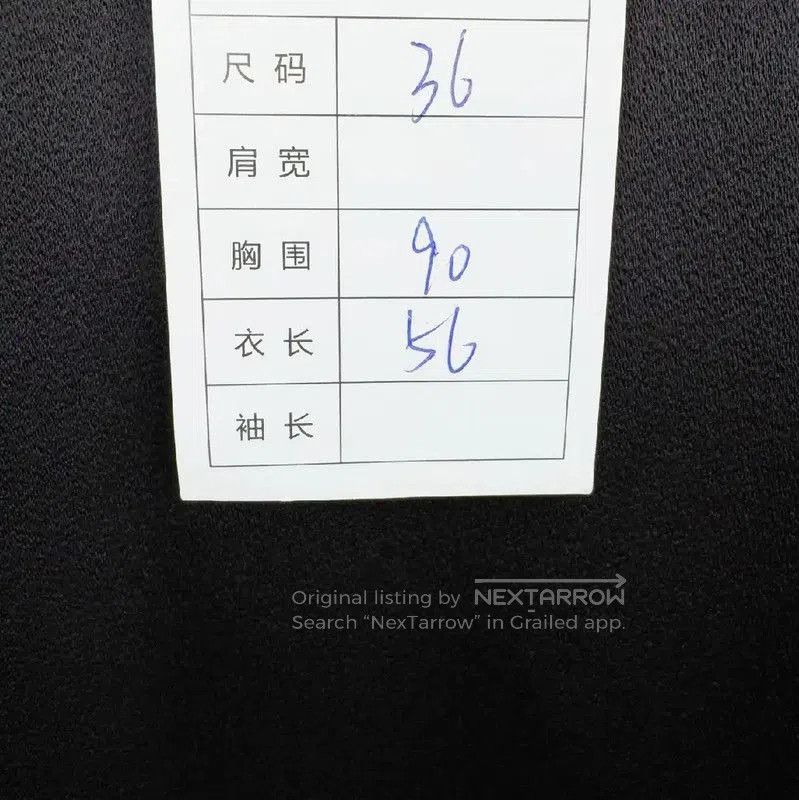 尺码 36
肩宽
胸围 90
衣长 56
袖长
Original listing by NEXTARROW
Search “NexTarrow” in Grailed app.